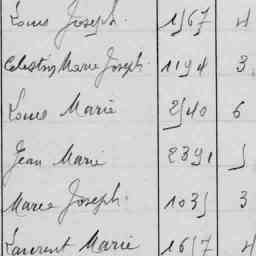 Louis Joseph. 1567 4
Celestin Marie Joseph. 1194 3
Louis Marie 2540 6
Jean Marie 2391 5
Marie Joseph. 1035 3
Laurent Marie 1657 4